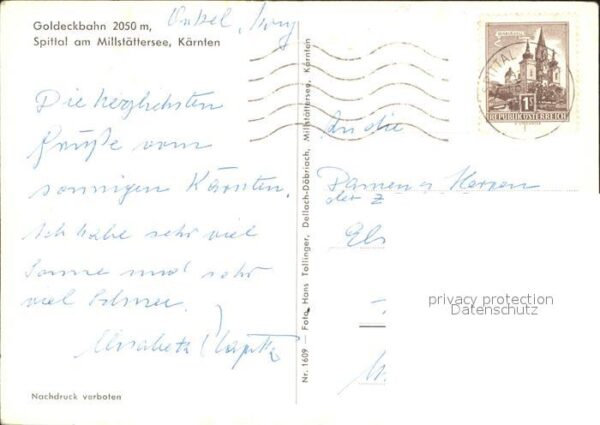 Goldeckbahn 2050 m,
Spittal am Millstättersee, Kärnten
Onkel,
Die herzlichsten
Grüße vom
sonnigen Kärnten.
Ich habe sehr viel
Sonne und sehr
viel Schnee.
Elisabeth
Nachdruck verboten
Nr. 1609 — Foto Hans Tollinger, Dellach-Döbriach, Millstättersee, Kärnten
SPITTAL
1S
REPUBLIK ÖSTERREICH
An die
Damen u Herren
der Z
Els
privacy protection
Datenschutz